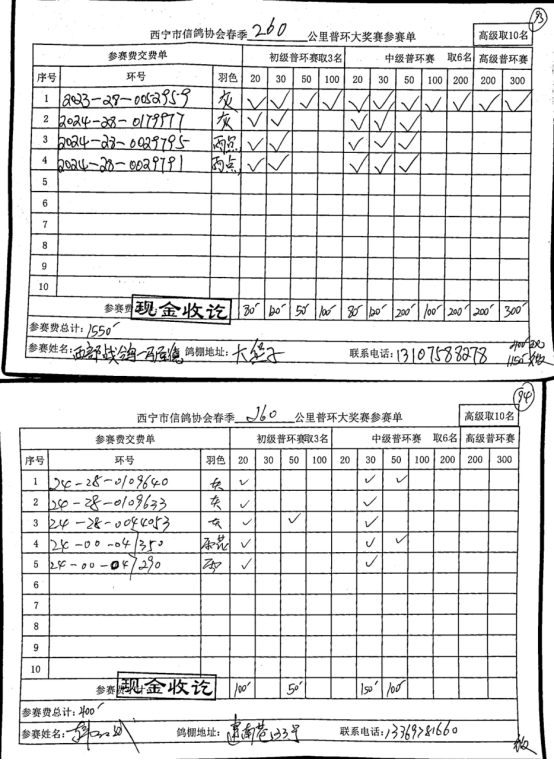 93
西宁市信鸽协会春季 260 公里普环大奖赛参赛单 高级取10名
参赛费交费单 初级普环赛取3名 中级普环赛 取6名 高级普环赛
序号 环号 羽色 20 30 50 100 20 30 50 100 200 200 300
1 2023-28-0052959 灰 ✓ ✓ ✓ ✓ ✓ ✓ ✓ ✓ ✓ ✓ ✓
2 2024-28-0179977 灰 ✓ ✓ ✓ ✓ ✓
3 2024-28-0029795 雨点 ✓ ✓ ✓ ✓ ✓
4 2024-28-0029791 雨点 ✓ ✓ ✓ ✓ ✓
5
6
7
8
9
10
参赛费 现金收讫 80 120 50 100 80 120 200 100 200 200 300
参赛费总计: 1550
参赛姓名: 西部战鸽 鸽棚地址: 联系电话: 13107588278
1150
94
西宁市信鸽协会春季 260 公里普环大奖赛参赛单 高级取10名
参赛费交费单 初级普环赛取3名 中级普环赛 取6名 高级普环赛
序号 环号 羽色 20 30 50 100 20 30 50 100 200 200 300
1 24-28-0109640 灰 ✓ ✓ ✓
2 24-28-0109633 灰 ✓ ✓
3 24-28-0044053 灰 ✓ ✓ ✓
4 24-00-047350 ✓ ✓ ✓
5 24-00-047290 ✓ ✓
6
7
8
9
10
参赛费 现金收讫 100 50 150 100
参赛费总计: 400
参赛姓名: 鸽棚地址: 建南巷133号 联系电话: 13369781660